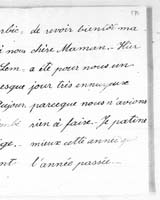 de revoir bientôt ma
nous chère Maman. Hier
a été pour nous un
jour très ennuyeux
parceque nous n'avions
rien à faire. Je patine
mieux cette année
l'année passée.